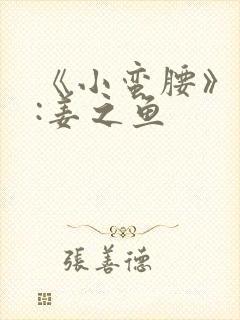 《小蛮腰》
:姜之鱼
張善德